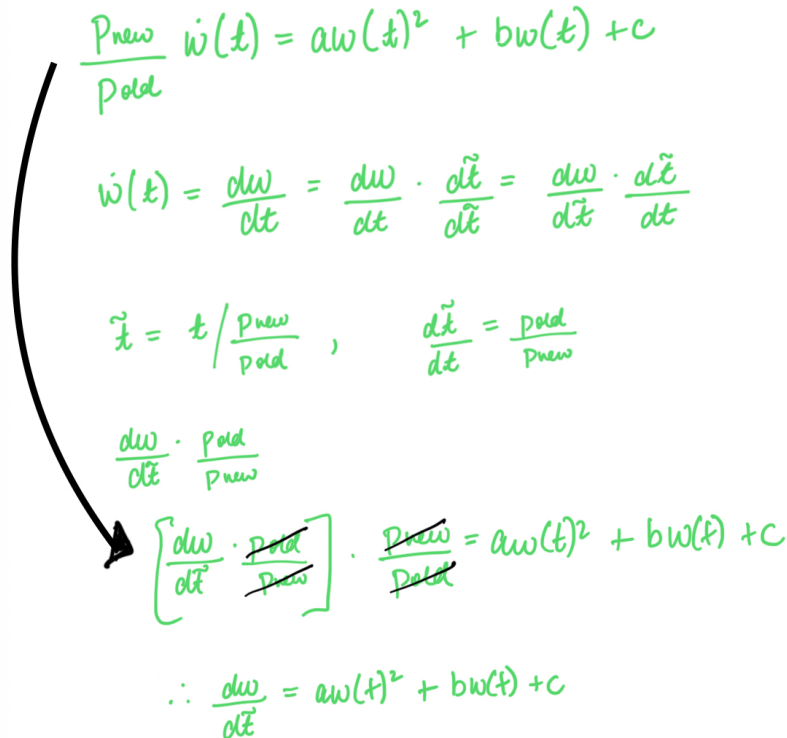 Pnew/Pold ẇ(t) = aw(t)² + bw(t) + c
ẇ(t) = dw/dt = dw/dt · dt̃/dt̃ = dw/dt̃ · dt̃/dt
t̃ = t / Pnew/Pold , dt̃/dt = Pold/Pnew
dw/dt̃ · Pold/Pnew
[dw/dt̃ · Pold/Pnew] · Pnew/Pold = aw(t)² + bw(t) + c
∴ dw/dt̃ = aw(t)² + bw(t) + c